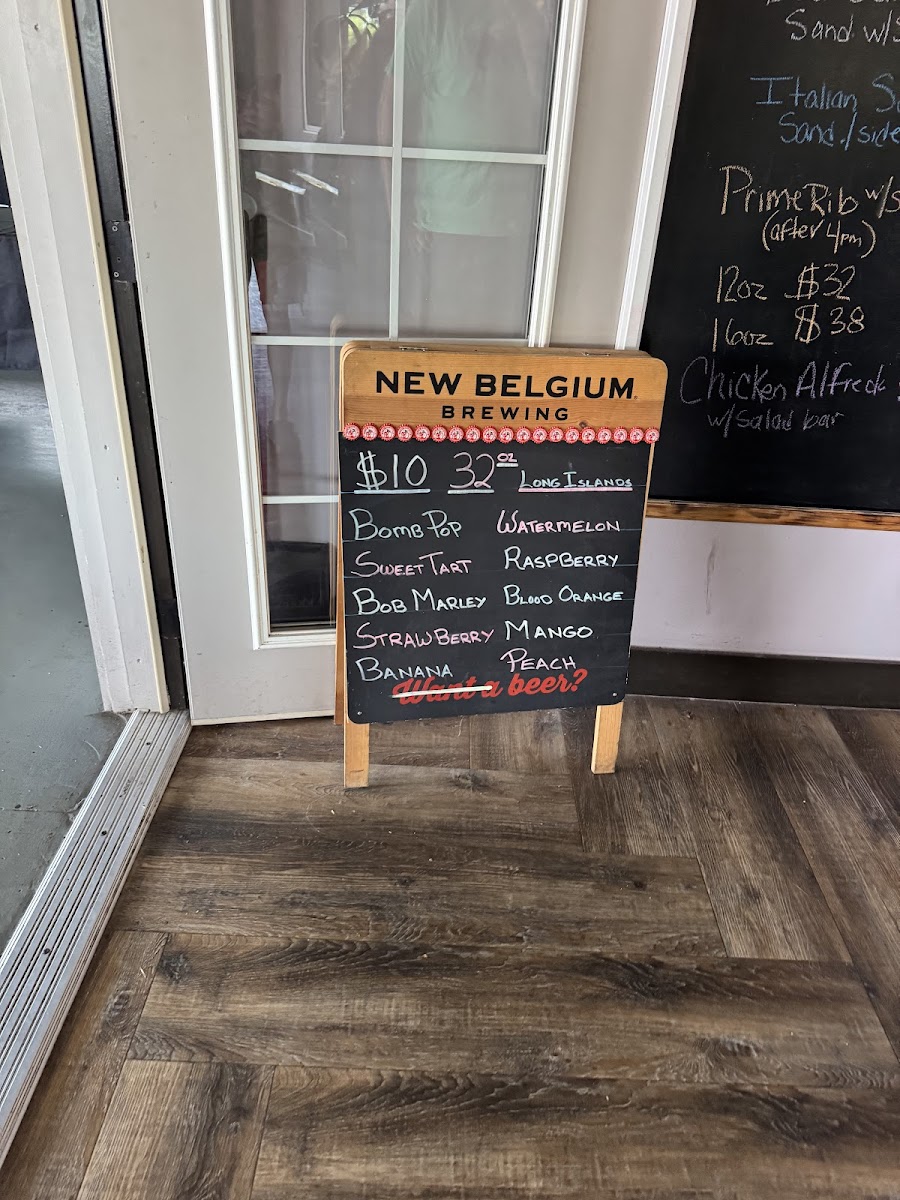 NEW BELGIUM
BREWING
$10 32oz LONG ISLANDS
BOMB POP WATERMELON
SWEET TART RASPBERRY
BOB MARLEY BLOOD ORANGE
STRAWBERRY MANGO
BANANA PEACH
Want a beer?
Sand w/
Italian
Sand./side
Prime Rib w/
(after 4pm)
12oz $32
16oz $38
Chicken Alfredo
w/salad bar